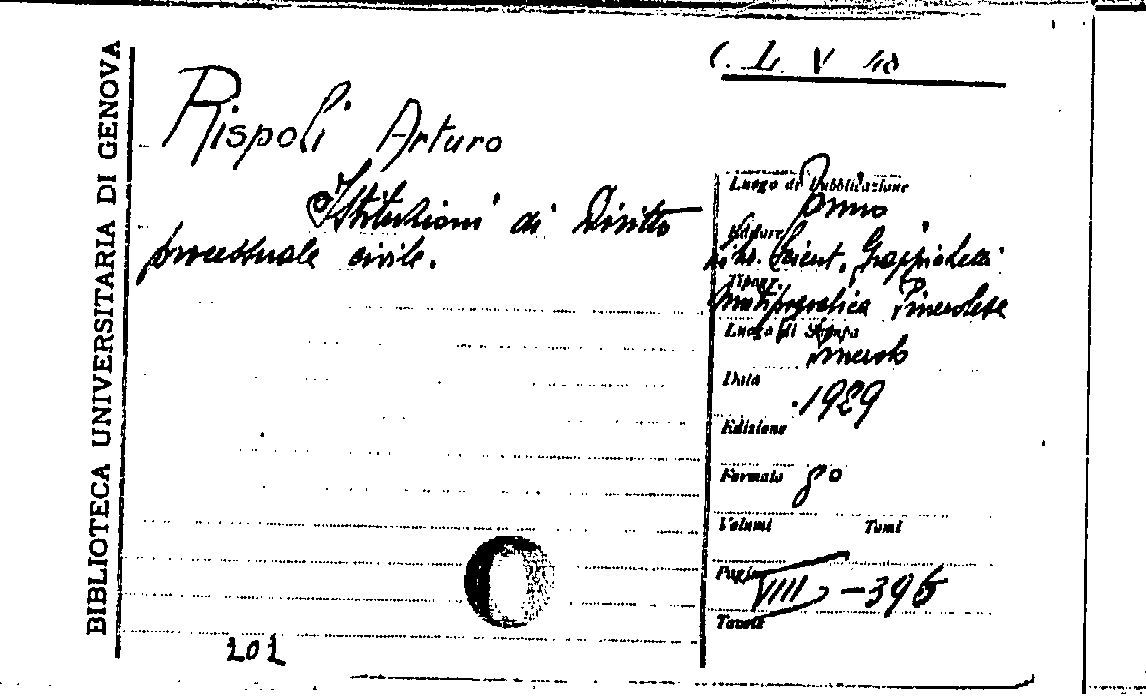 BIBLIOTECA UNIVERSITARIA DI GENOVA
C. L. V 40
Rispoli Arturo
Istituzioni di Diritto
processuale civile.
Luogo di Pubblicazione
Editore
Scient.
Tipogr.
Pinerolese
Luogo di Stampa
Pinerolo
Data
1929
Edizione
Formato 8º
Volumi Tomi
Pagine VIII - 396
Tavole
202